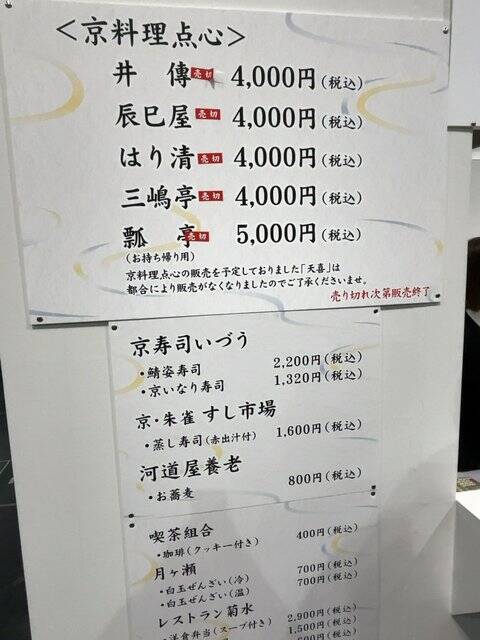 <京料理点心>
井傳 売切 4,000円(税込)
辰巳屋 売切 4,000円(税込)
はり清 売切 4,000円(税込)
三嶋亭 売切 4,000円(税込)
瓢亭 売切 5,000円(税込)
(お持ち帰り用)
京料理点心の販売を予定しておりました「天喜」は
都合により販売がなくなりましたのでご了承くださいませ。
売り切れ次第販売終了
京寿司いづう
・鯖姿寿司 2,200円(税込)
・京いなり寿司 1,320円(税込)
京・朱雀 すし市場
・蒸し寿司(赤出汁付) 1,600円(税込)
河道屋養老
・お蕎麦 800円(税込)
喫茶組合
・珈琲(クッキー付き) 400円(税込)
月ヶ瀬
・白玉ぜんざい(冷) 700円(税込)
・白玉ぜんざい(温) 700円(税込)
レストラン菊水
・洋食弁当(スープ付き) 2,900円(税込)
1,500円(税込)